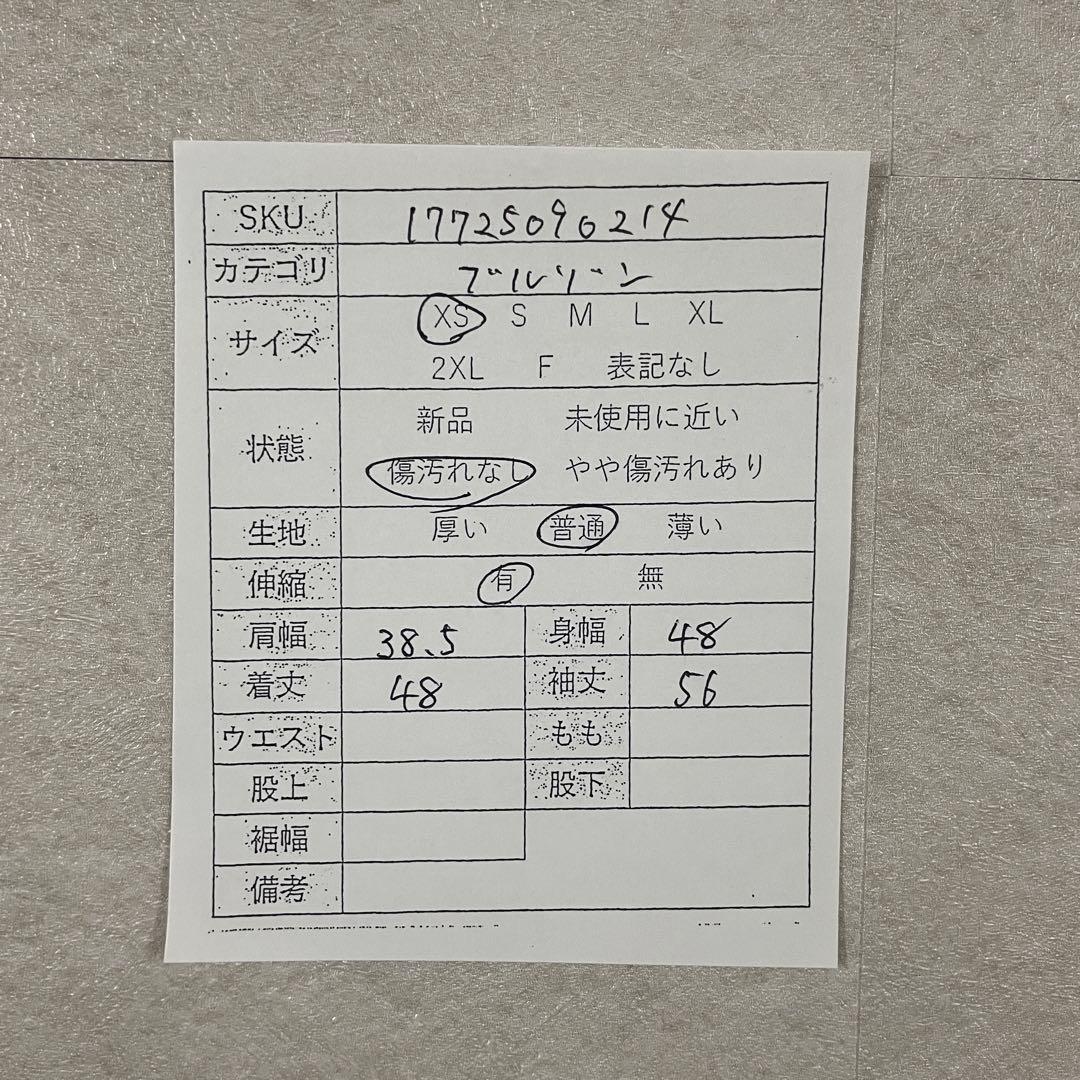 SKU 17725090214
カテゴリ ブルゾン
サイズ XS S M L XL
2XL F 表記なし
状態 新品 未使用に近い
傷汚れなし やや傷汚れあり
生地 厚い 普通 薄い
伸縮 有 無
肩幅 38.5 身幅 48
着丈 48 袖丈 56
ウエスト もも
股上 股下
裾幅
備考